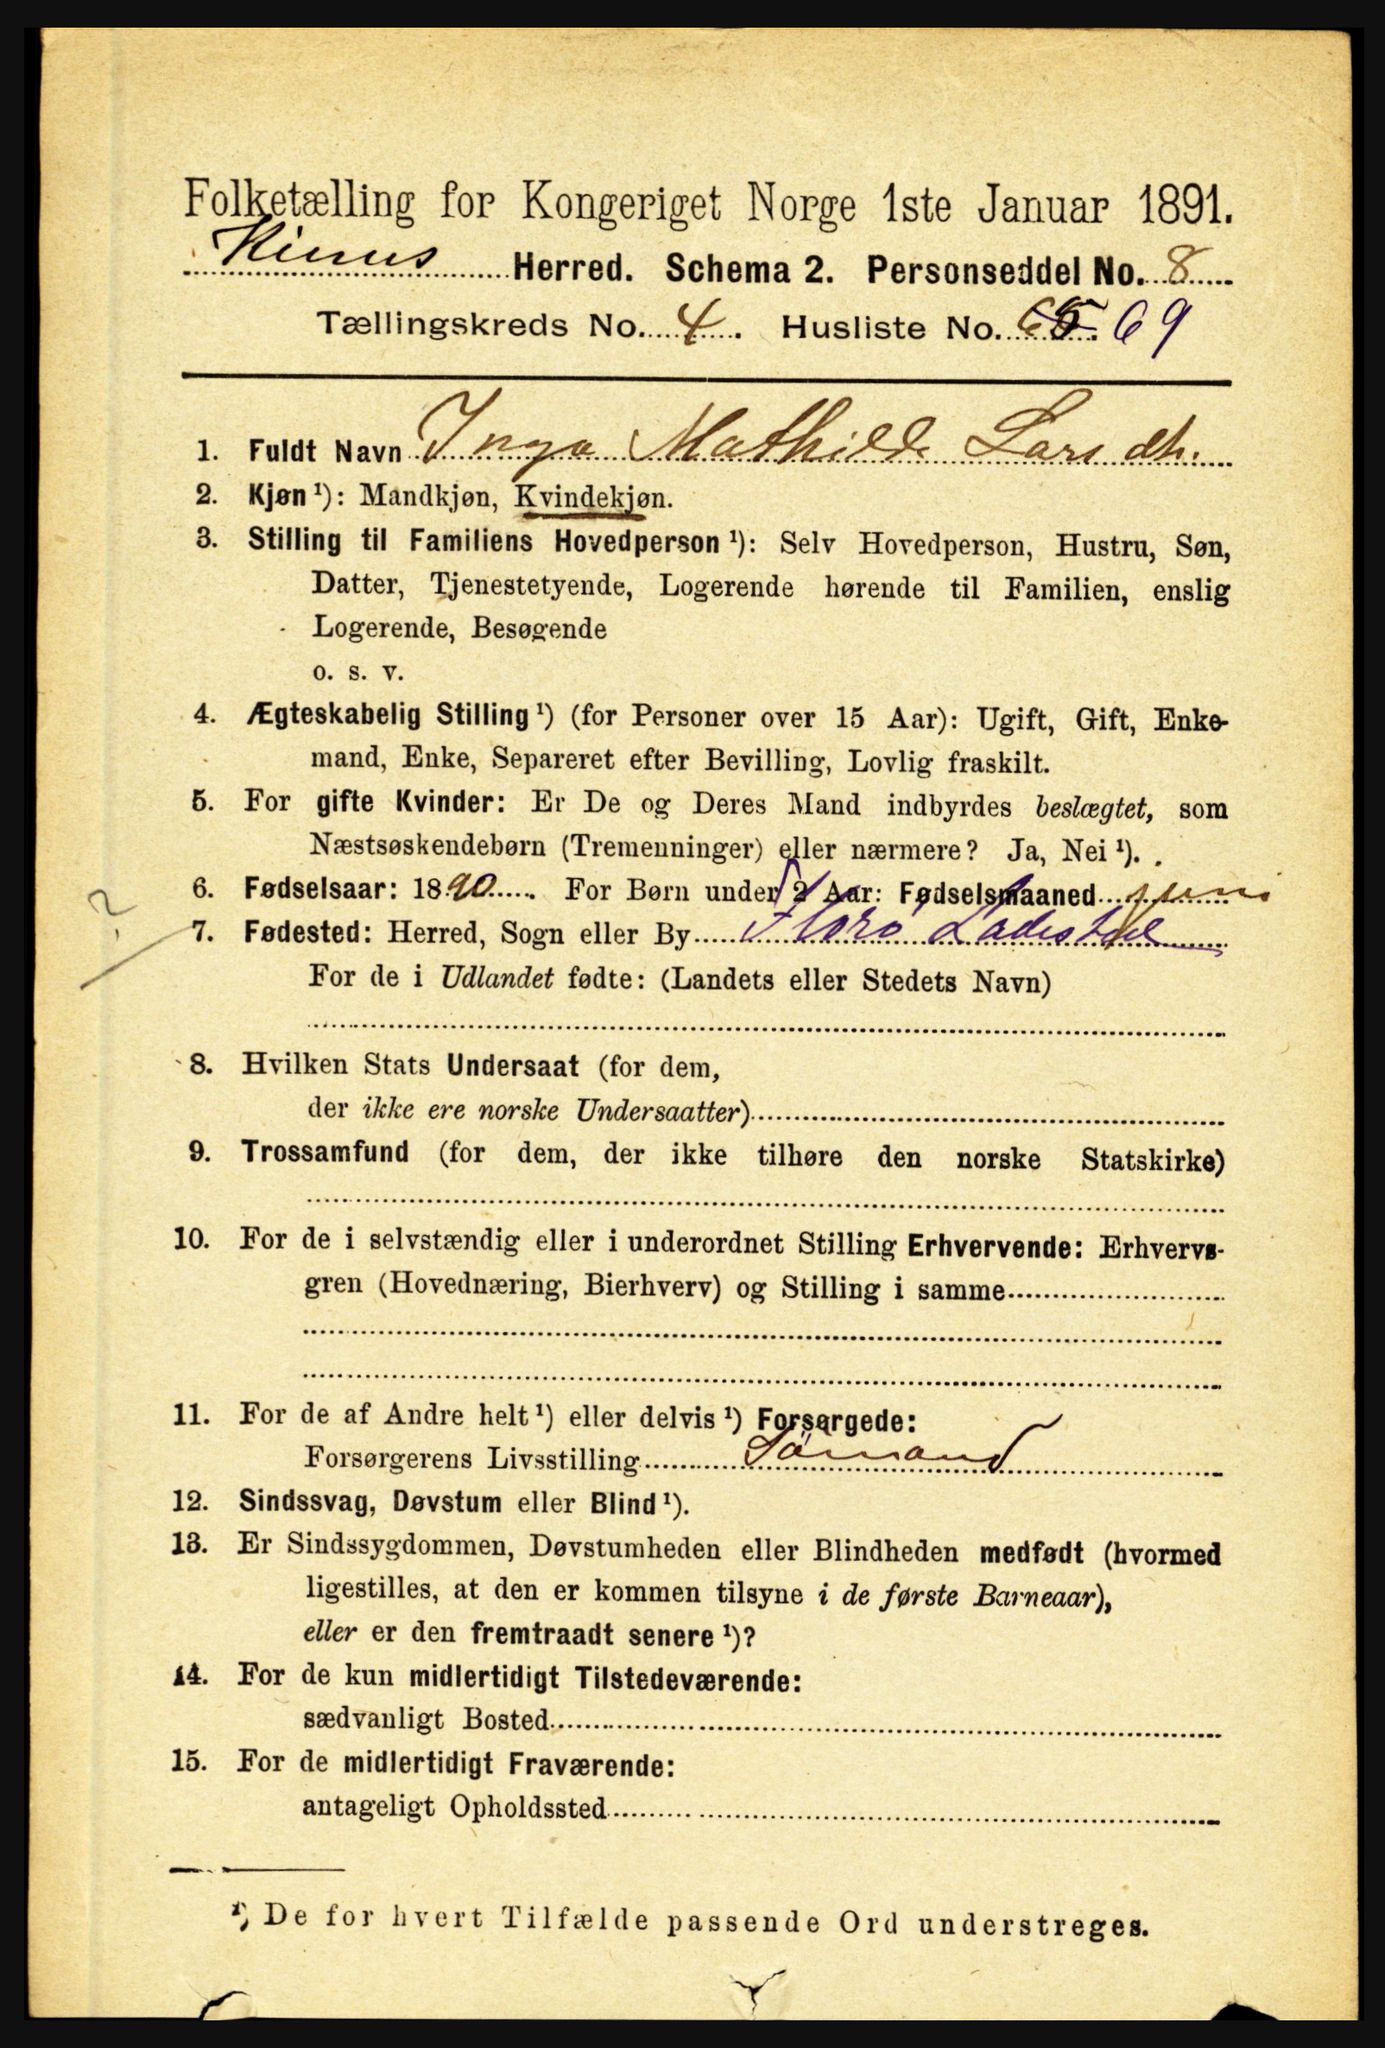 Folketælling for Kongeriget Norge 1ste Januar 1891.
Kinns Herred. Schema 2. Personseddel No. 8
Tællingskreds No. 4. Husliste No. 65. 69
1. Fuldt Navn Inga Mathilde Larsdtr.
2. Kjøn ¹): Mandkjøn, Kvindekjøn.
3. Stilling til Familiens Hovedperson ¹): Selv Hovedperson, Hustru, Søn,
Datter, Tjenestetyende, Logerende hørende til Familien, enslig
Logerende, Besøgende
o. s. v.
4. Ægteskabelig Stilling ¹) (for Personer over 15 Aar): Ugift, Gift, Enke-
mand, Enke, Separeret efter Bevilling, Lovlig fraskilt.
5. For gifte Kvinder: Er De og Deres Mand indbyrdes beslægtet, som
Næstsøskendebørn (Tremenninger) eller nærmere? Ja, Nei ¹).
6. Fødselsaar: 1890. For Børn under 2 Aar: Fødselsmaaned juni
?
7. Fødested: Herred, Sogn eller By Florø Ladested
For de i Udlandet fødte: (Landets eller Stedets Navn)
8. Hvilken Stats Undersaat (for dem,
der ikke ere norske Undersaatter)
9. Trossamfund (for dem, der ikke tilhøre den norske Statskirke)
10. For de i selvstændig eller i underordnet Stilling Erhvervende: Erhvervs-
gren (Hovednæring, Bierhverv) og Stilling i samme
11. For de af Andre helt ¹) eller delvis ¹) Forsørgede:
Forsørgerens Livsstilling Sømand
12. Sindssvag, Døvstum eller Blind ¹).
13. Er Sindssygdommen, Døvstumheden eller Blindheden medfødt (hvormed
ligestilles, at den er kommen tilsyne i de første Barneaar),
eller er den fremtraadt senere ¹)?
14. For de kun midlertidigt Tilstedeværende:
sædvanligt Bosted
15. For de midlertidigt Fraværende:
antageligt Opholdssted
¹) De for hvert Tilfælde passende Ord understreges.